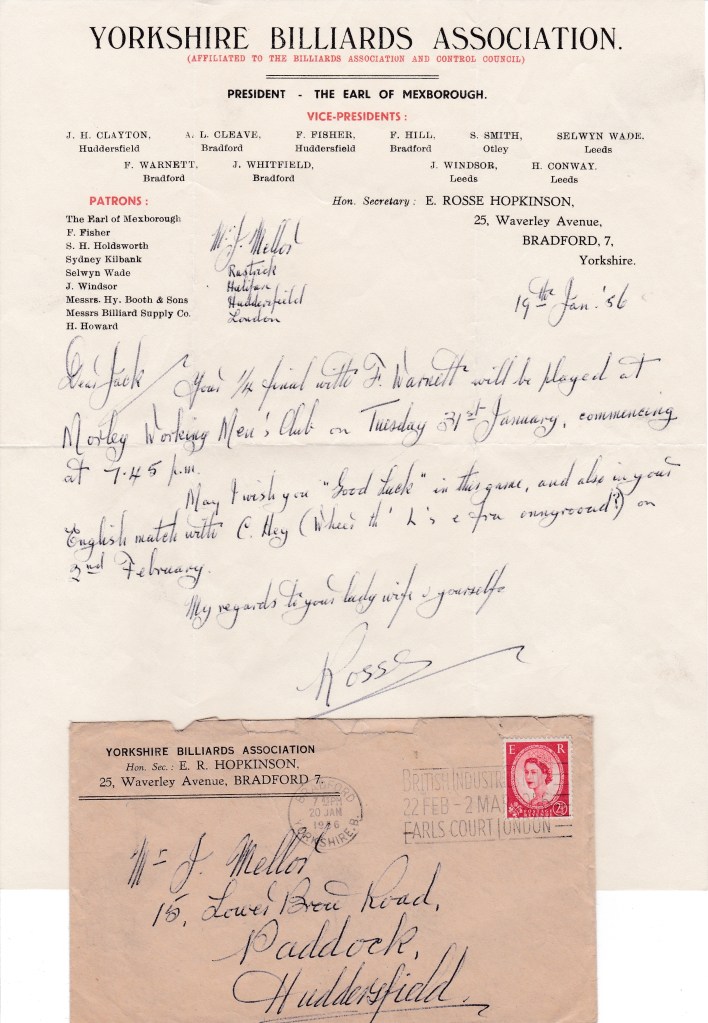 YORKSHIRE BILLIARDS ASSOCIATION.
(AFFILIATED TO THE BILLIARDS ASSOCIATION AND CONTROL COUNCIL)
PRESIDENT - THE EARL OF MEXBOROUGH.
VICE-PRESIDENTS :
J. H. CLAYTON, A. L. CLEAVE, F. FISHER, F. HILL, S. SMITH, SELWYN WADE,
Huddersfield Bradford Huddersfield Bradford Otley Leeds
F. WARNETT, J. WHITFIELD, J. WINDSOR, H. CONWAY.
Bradford Bradford Leeds Leeds
PATRONS :
The Earl of Mexborough
F. Fisher
S. H. Holdsworth
Sydney Kilbank
Selwyn Wade
J. Windsor
Messrs. Hy. Booth & Sons
Messrs Billiard Supply Co.
H. Howard
Mr. J. Mellor
Rastrick
Halifax
Huddersfield
London
Hon. Secretary : E. ROSSE HOPKINSON,
25, Waverley Avenue,
BRADFORD, 7,
Yorkshire.
19th Jan. '56
Dear Jack
Your 1/4 final with F. Warnett will be played at
Morley Working Men's Club on Tuesday 31st January, commencing
at 7.45 p.m.
May I wish you "Good Luck" in this game, and also in your
English match with C. Hey (th' e fra ennyrooad?) on
2nd February.
My regards to your lady wife & yourself
Rosse
YORKSHIRE BILLIARDS ASSOCIATION
Hon. Sec.: E. R. HOPKINSON,
25, Waverley Avenue, BRADFORD 7.
BRADFORD
20 JAN
1956
YORKSHIRE.B.
BRITISH INDUSTR
22 FEB - 2 MA
EARLS COURT LONDON
E R
2½
Mr J. Mellor
15, Lower Brow Road,
Paddock,
Huddersfield.